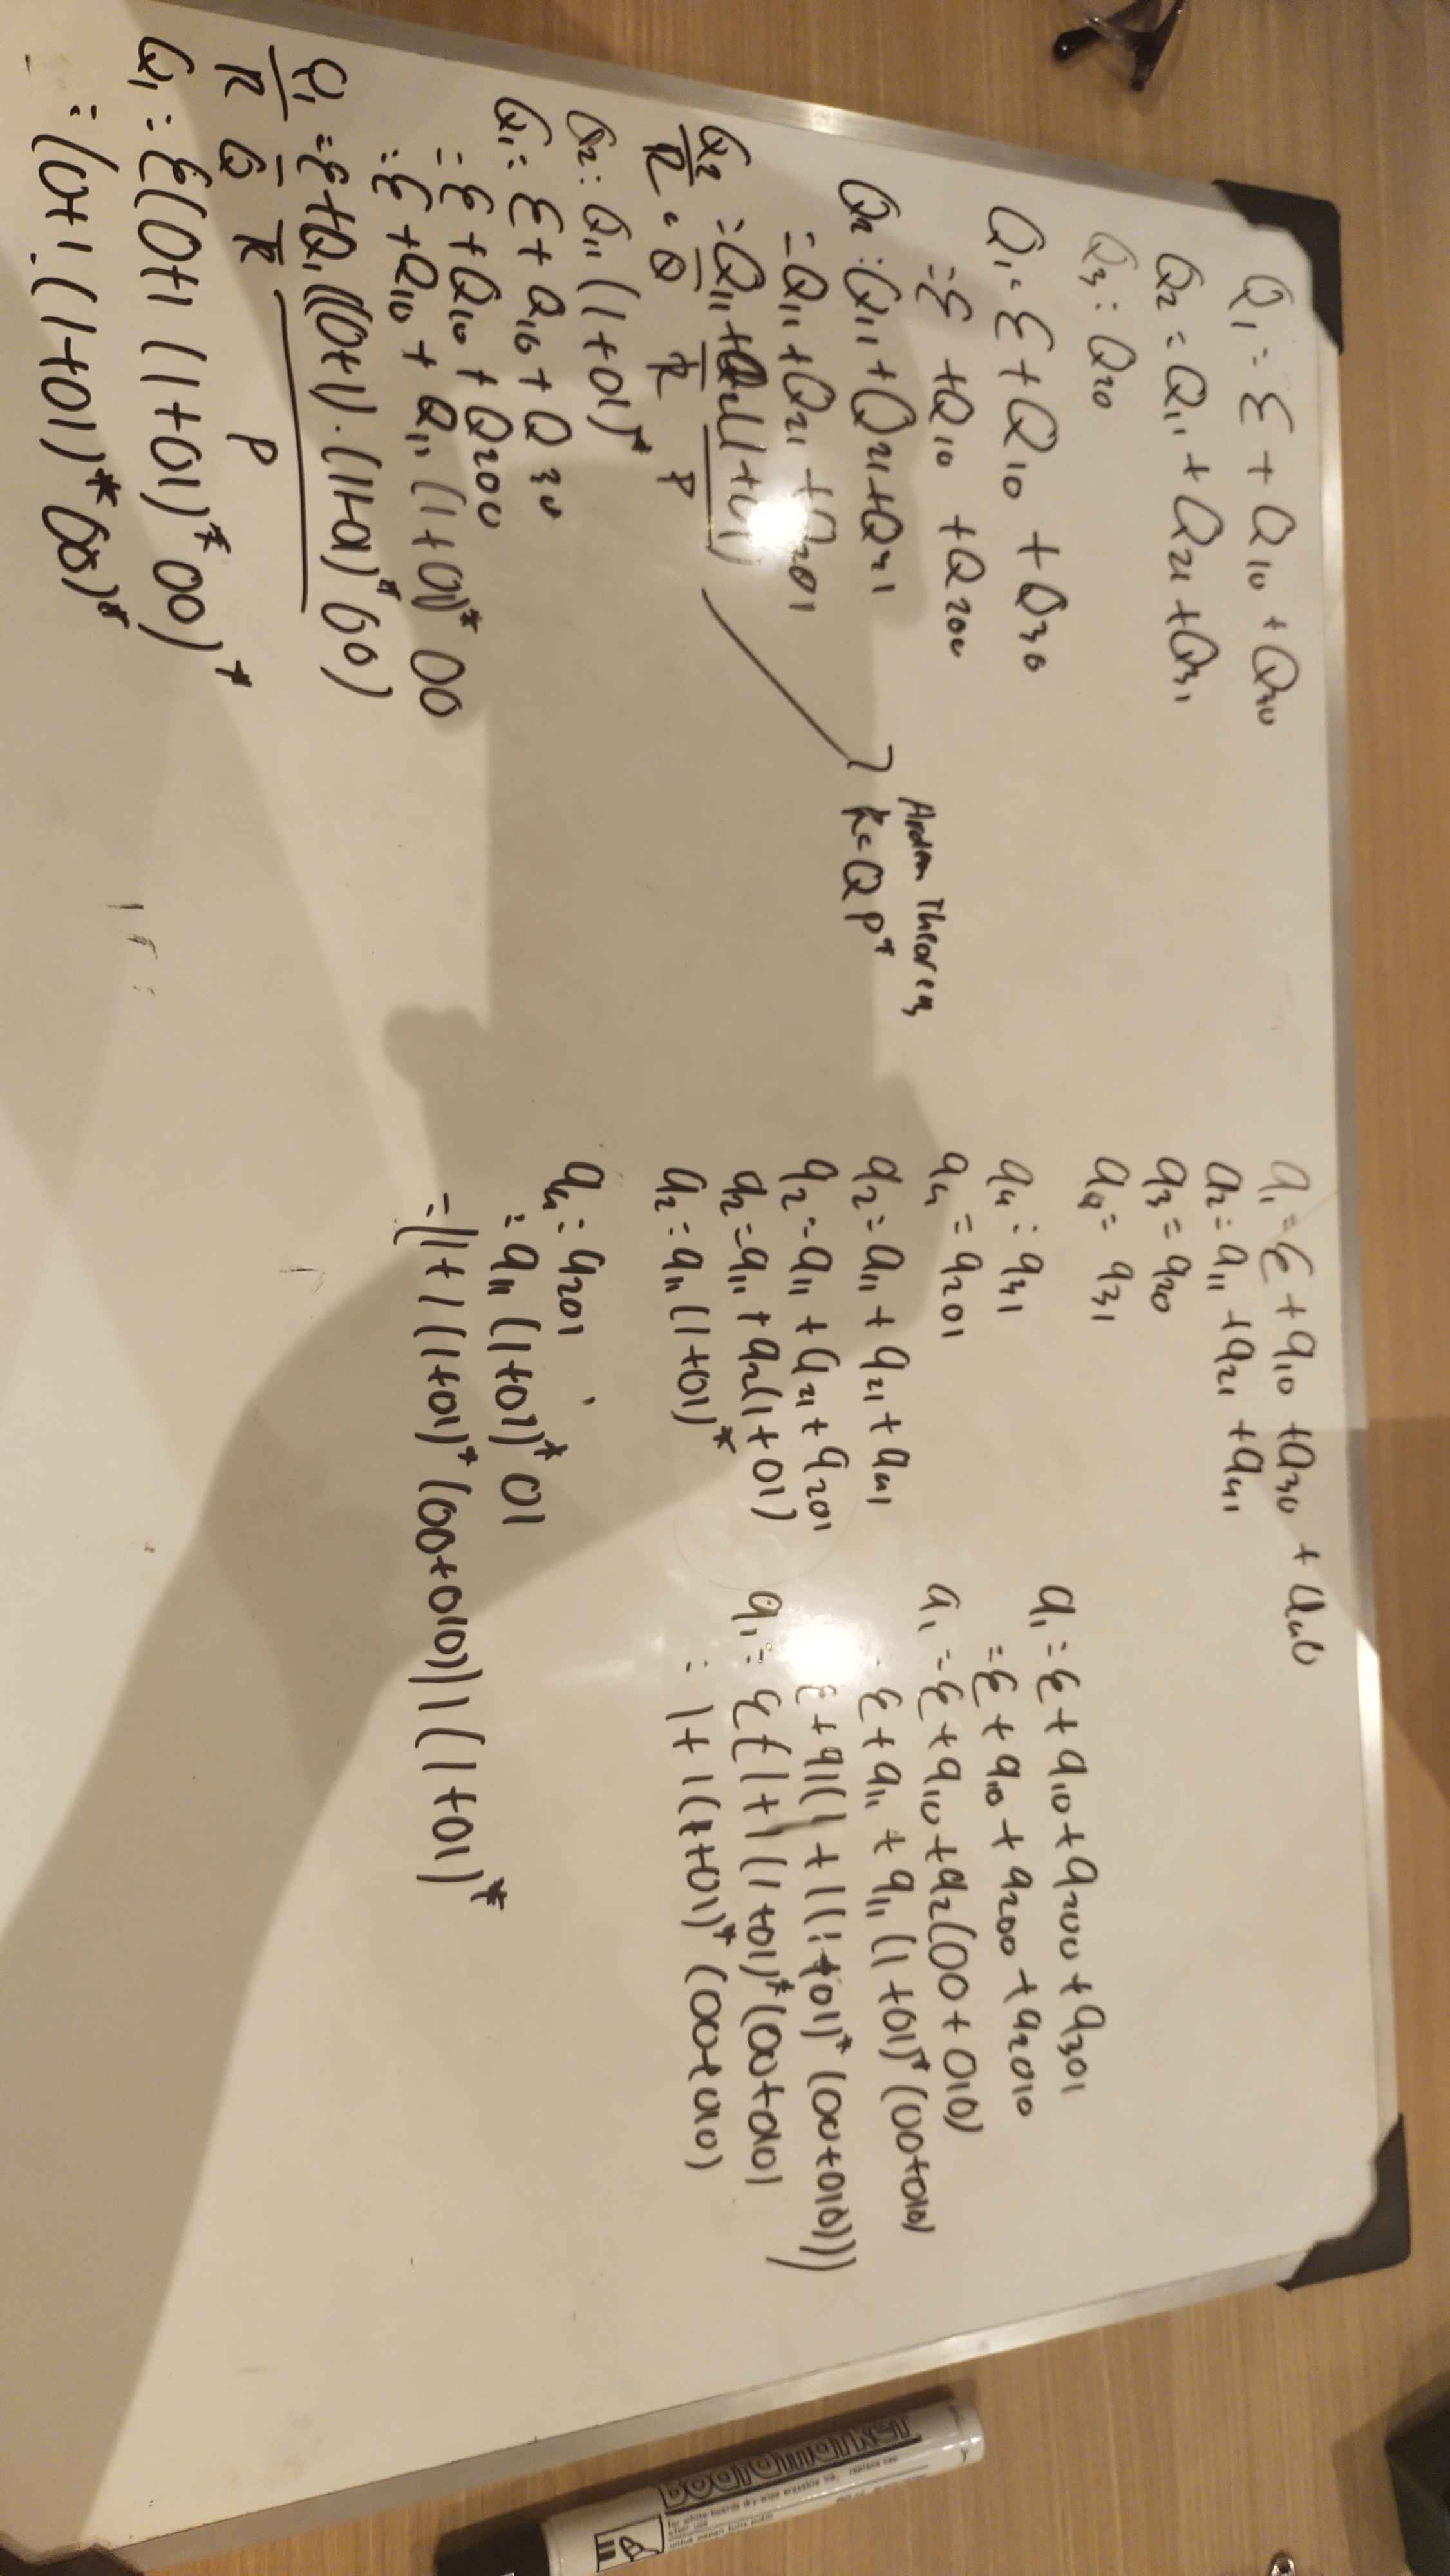 Q₁ = ε + Q₁0 + Q₃0
Q₂ = Q₁1 + Q₂1 + Q₃1
Q₃ : Q₂0
Q₁ = ε + Q₁0 + Q₃0
= ε + Q₁0 + Q₂00
Q₂ : Q₁1 + Q₂1 + Q₃1
= Q₁1 + Q₂1 + Q₂01
Q₂ = Q₁1 + Q₂(1+01)
R = Q R P
Arden Theorem
R = QP*
Q₂ : Q₁1 (1+01)*
Q₁ = ε + Q₁0 + Q₃0
= ε + Q₁0 + Q₂00
= ε + Q₁0 + Q₁1 (1+01)* 00
Q₁ = ε + Q₁((0+1).(1+01)* 00)
R Q R P
Q₁ = ε(0+1 (1+01)* 00)*
= (0+1.(1+01)* 00)*
q₁ = ε + q₁0 + q₃0 + q₄0
q₂ = q₁1 + q₂1 + q₄1
q₃ = q₂0
q₄ = q₃1
q₄ = q₃1
q₄ = q₂01
q₂ = q₁1 + q₂1 + q₄1
q₂ = q₁1 + q₂1 + q₂01
q₂ = q₁1 + q₂(1+01)
q₂ = q₁1 (1+01)*
q₄ = q₂01
= q₁1 (1+01)* 01
= (1+1(1+01)* (00+010))1(1+01)*
q₁ = ε + q₁0 + q₂00 + q₃01
= ε + q₁0 + q₂00 + q₂010
q₁ = ε + q₁0 + q₂(00+010)
ε + q₁1 + q₁1 (1+01)* (00+010)
ε + q1(1 + 1(1+01)* (00+010)))
q₁ = ε(1+1(1+01)* (00+010)
= 1+1(1+01)* (00+010)